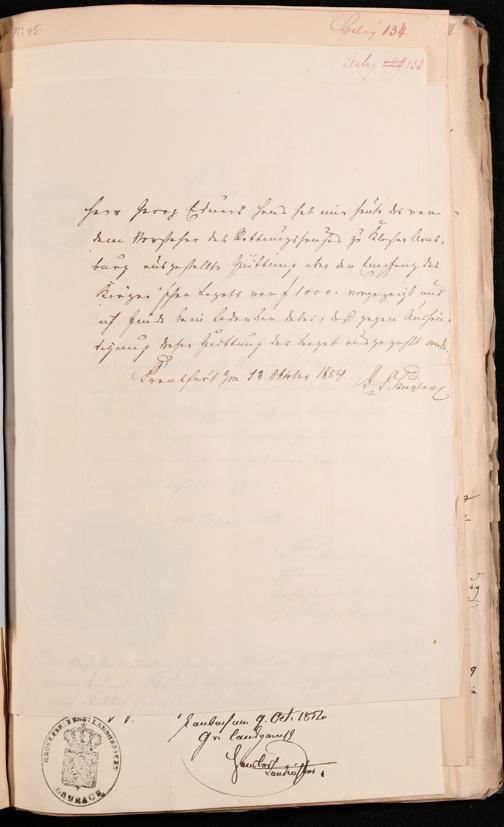 N: 45
Beleg 134
Beleg 133
Herr Georg Eduard hat mir heute die von
dem Vorsteher des Rettungshauses zu Kloster Arns-
burg ausgestellte Quittung über den Empfang des
Krüger'schen Legats von f 1000. vorgezeigt und
ich finde kein Bedenken dabei, daß gegen Aushän-
digung dieser Quittung das Legat ausgezahlt werde.
Frankfurt den 13 Oktober 1854.
Laubach am 9. Oct. 1854
Gr. Landgericht
Landrichter.
GROSHERZ. HESS. LANDGERICHT
LAUBACH